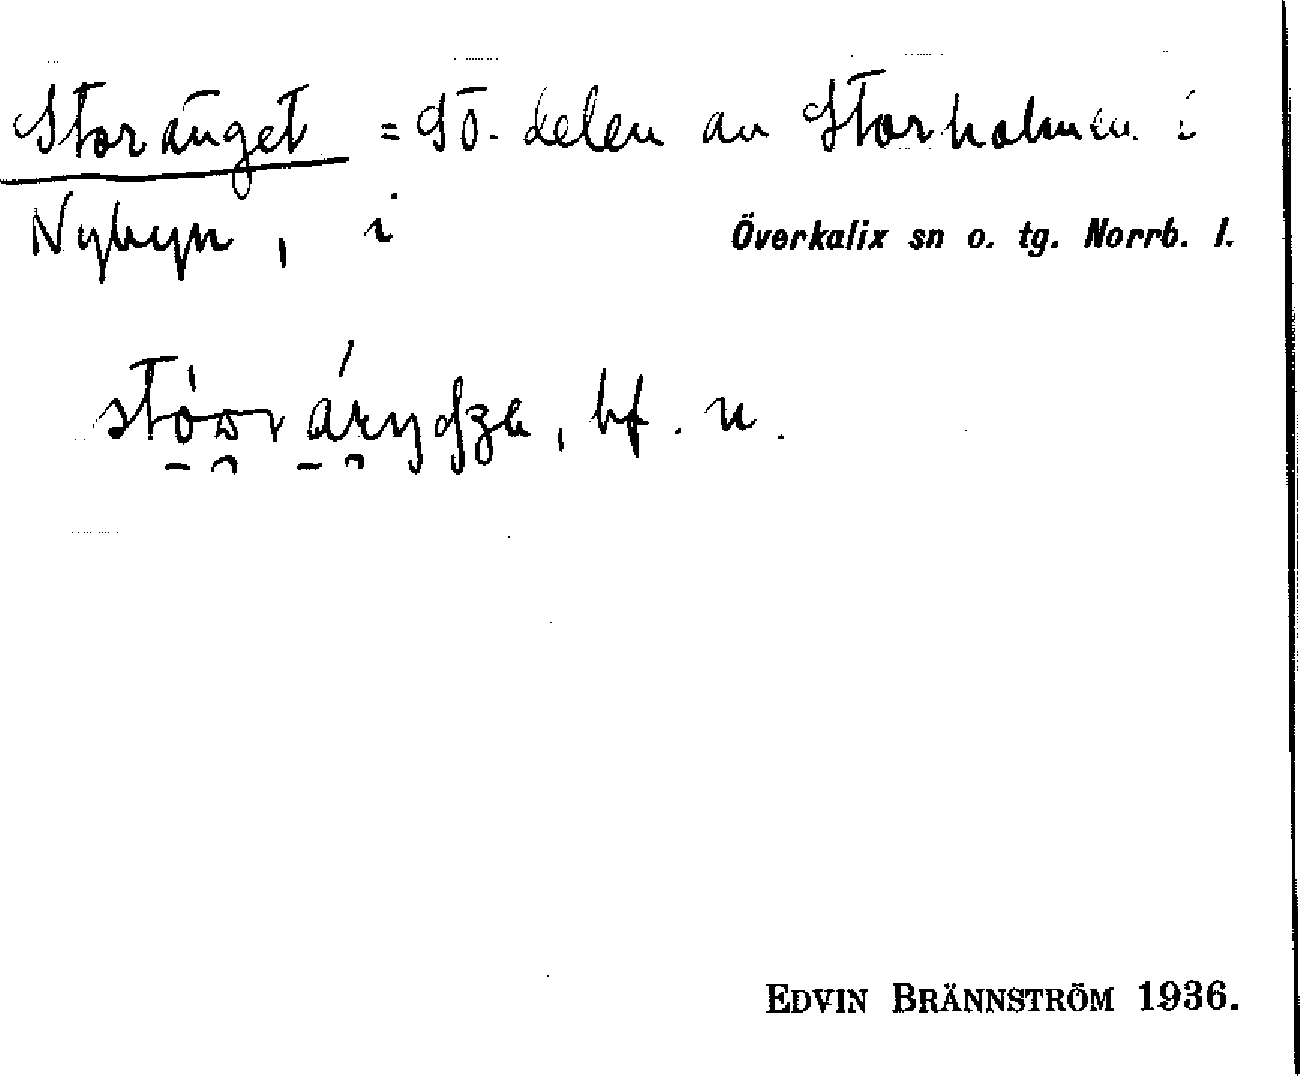 Storänget = SÖ. delen av Storholmen i
Nybyn, i Överkalix sn o. tg. Norrb. l.
bf. n.
EDVIN BRÄNNSTRÖM 1936.